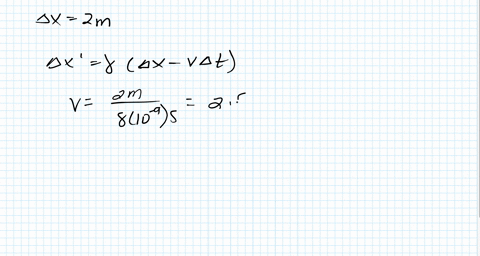 Δx = 2m
Δx' = γ (Δx - vΔt)
v = 2m / 8(10⁻⁹)s = 2.5